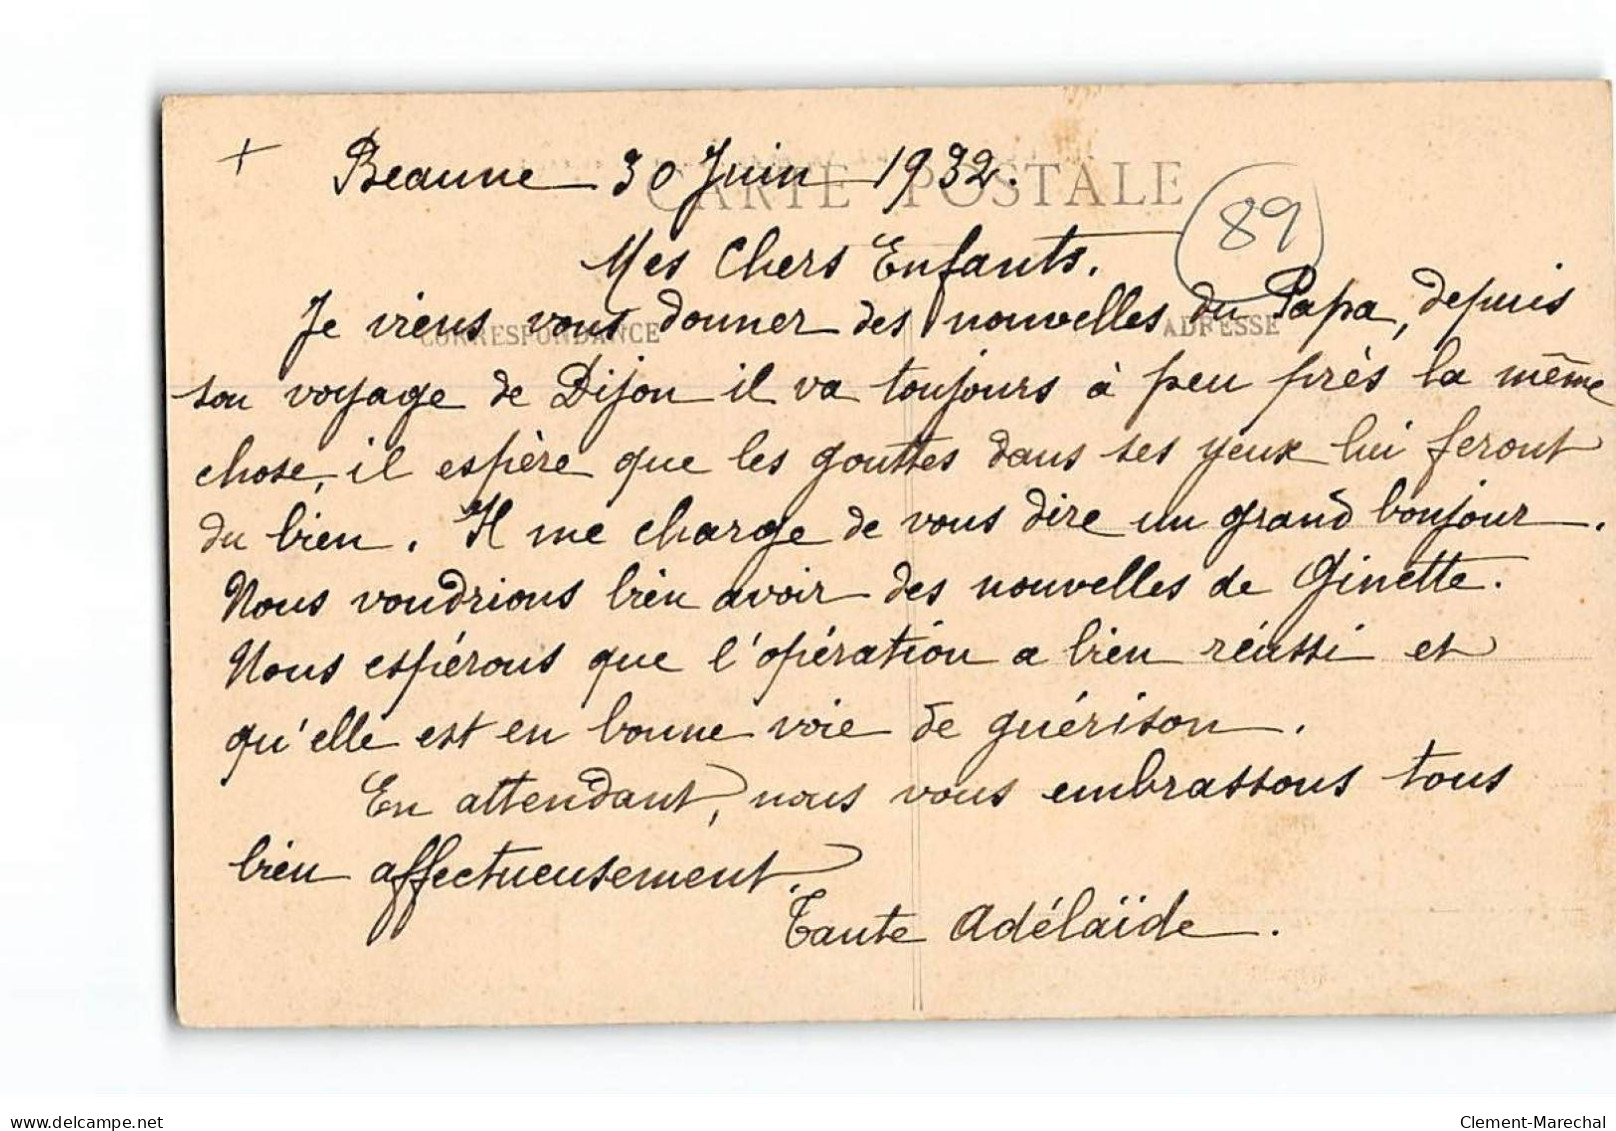 + Beaune 30 Juin 1932.
CARTE POSTALE
89
Mes Chers Enfants.
Je viens vous donner des nouvelles du Papa, depuis
CORRESPONDANCE ADRESSE
son voyage de Dijon il va toujours à peu près la même
chose, il espère que les gouttes dans ses yeux lui feront
du bien. Il me charge de vous dire un grand bonjour.
Nous voudrions bien avoir des nouvelles de Ginette.
Nous espérons que l'opération a bien réussi et
qu'elle est en bonne voie de guérison.
En attendant, nous vous embrassons tous
bien affectueusement.
Tante Adélaïde.
www.delcampe.net Clement-Marechal